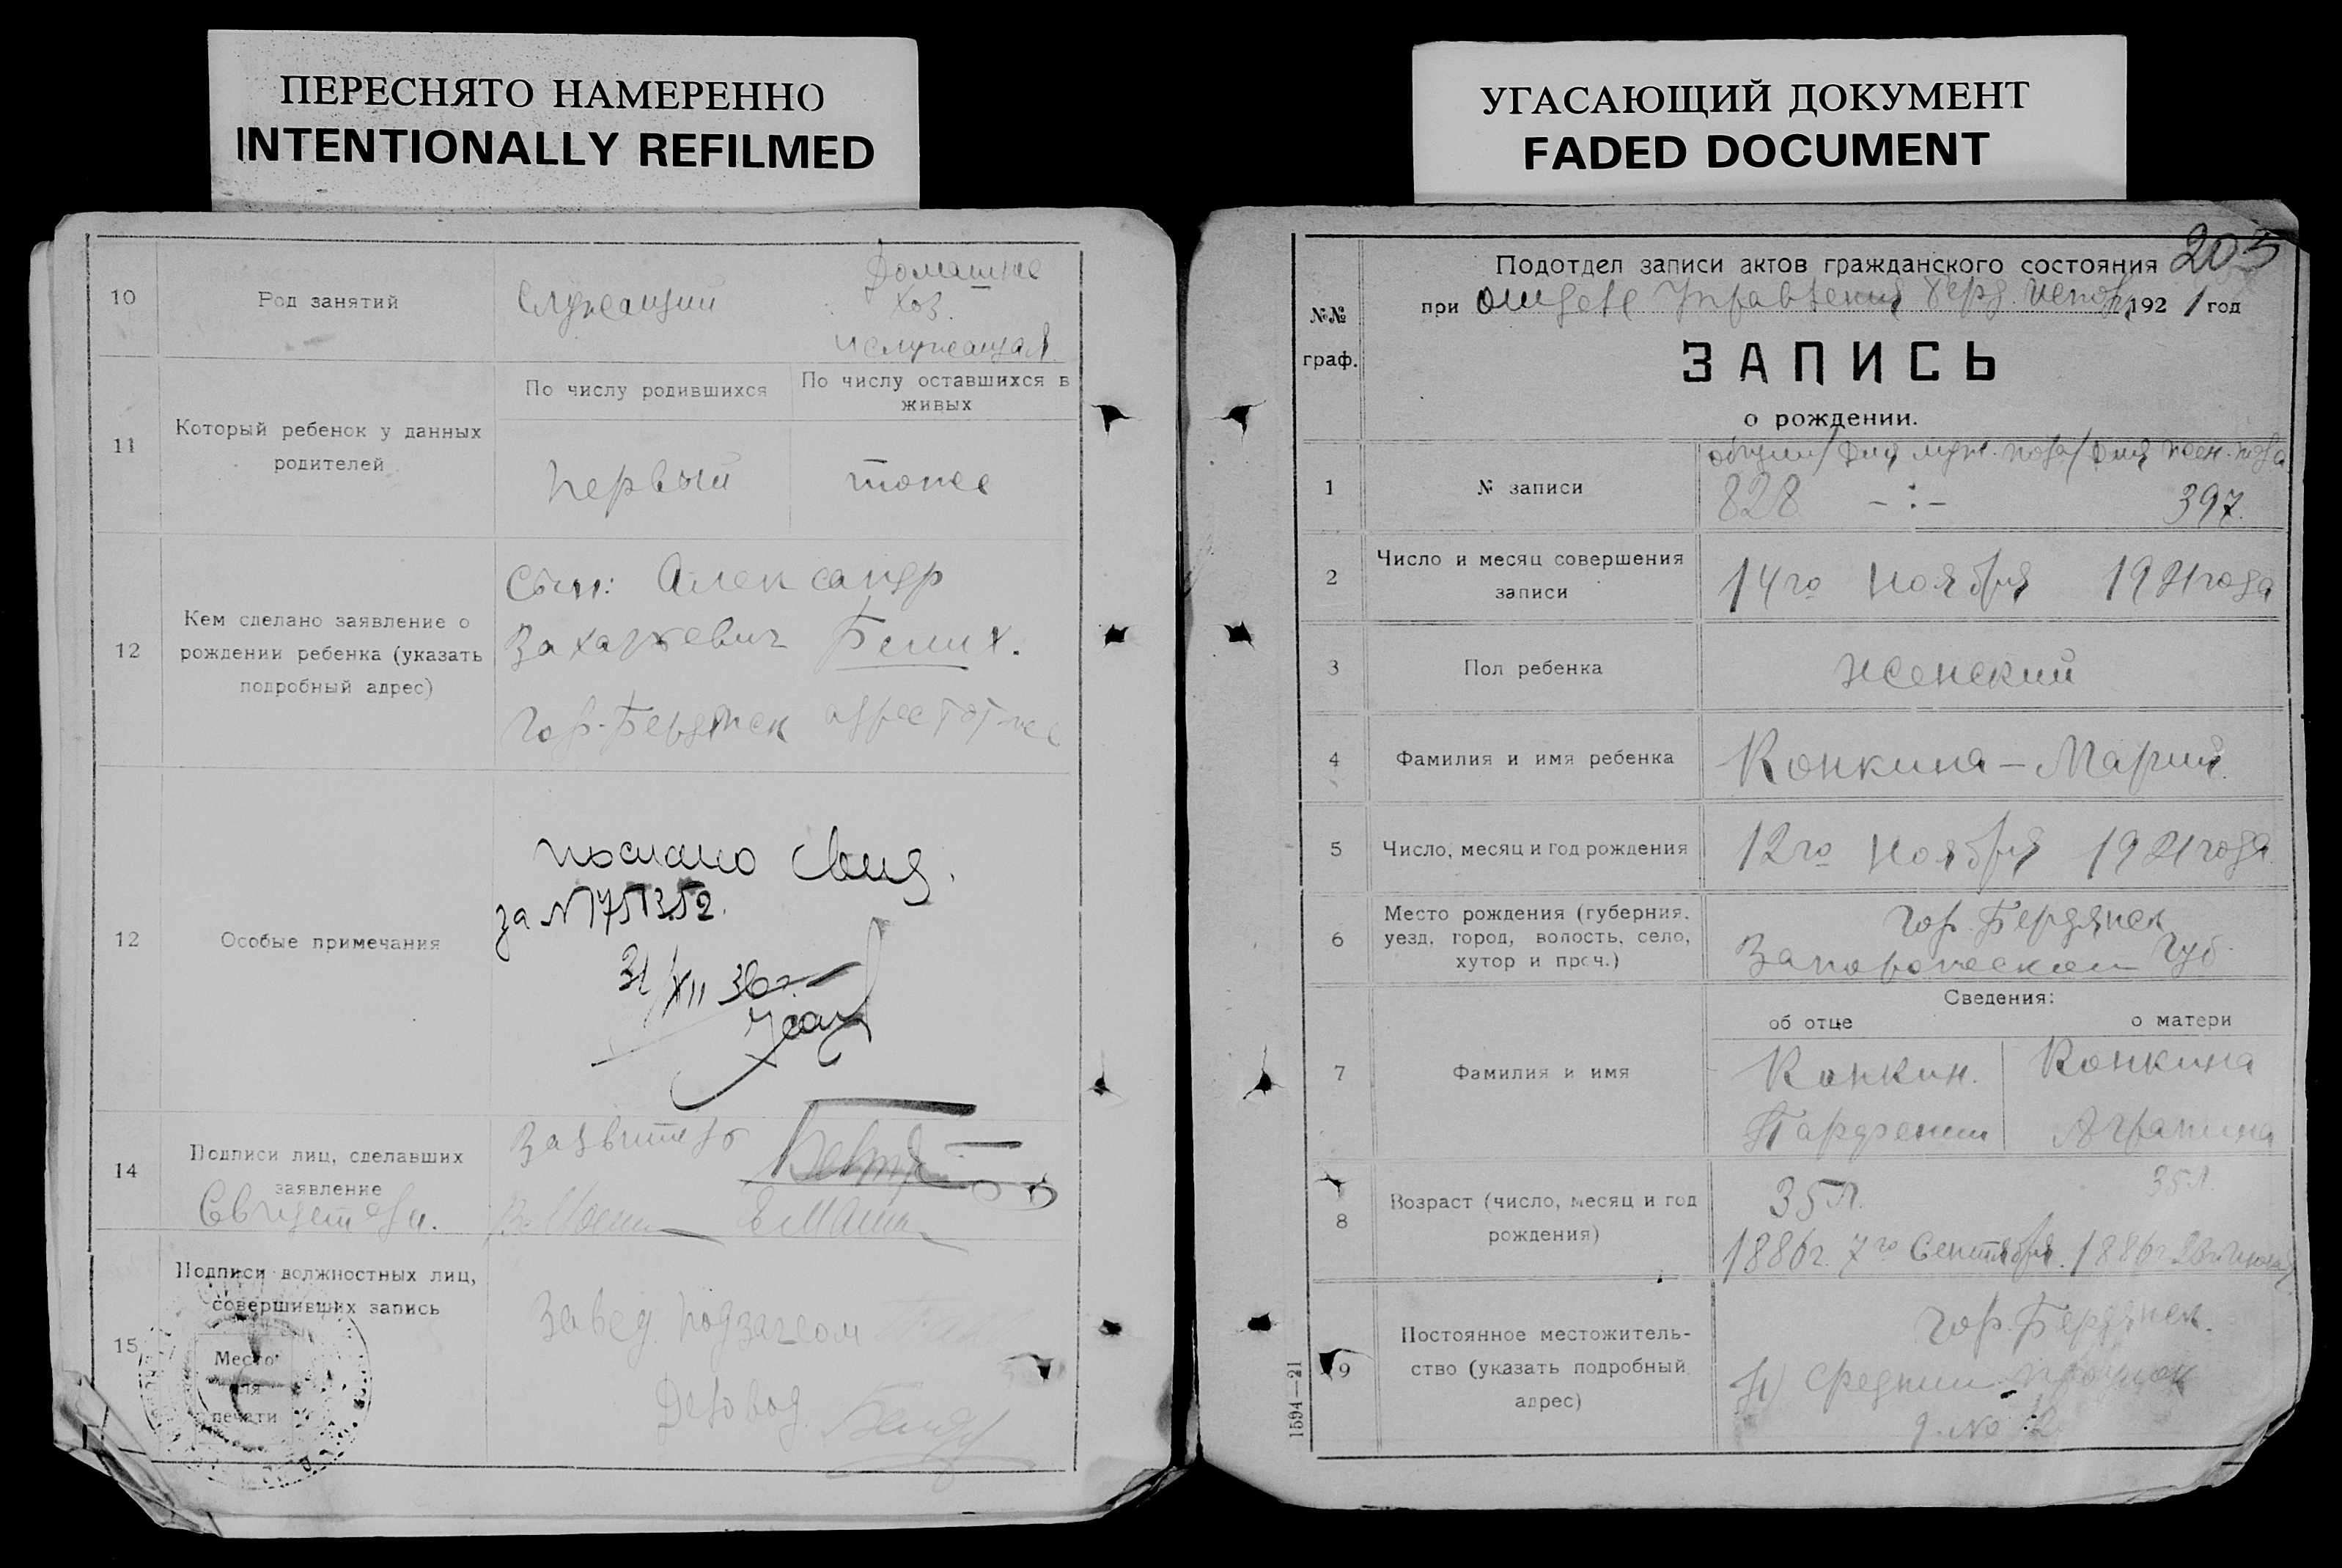 ПЕРЕСНЯТО НАМЕРЕННО
INTENTIONALLY REFILMED
10
Род занятий
Служащий
Домашнее
хоз.
и служащая
11
Который ребенок у данных
родителей
По числу родившихся
По числу оставшихся в
живых
первый
тоже
12
Кем сделано заявление о
рождении ребенка (указать
подробный адрес)
Сын: Александр
Захарьевич
Гор. Бердянск адрес тот-же
12
Особые примечания
послано свид.
за №
31/XII 36г.
14
Подписи лиц, сделавших
заявление
Свидетели.
Заявитель
15
Подписи должностных лиц,
совершивших запись
Место
для
печати
Завед. подзагсом
Деловод
УГАСАЮЩИЙ ДОКУМЕНТ
FADED DOCUMENT
205
№№
граф.
Подотдел записи актов гражданского состояния
при отделе Управления Берд. Исполк. 1921 год
ЗАПИСЬ
о рождении.
1
№ записи
общий/для муж. пола/для жен. пола
828 -:- 397.
2
Число и месяц совершения
записи
14го Ноября 1921 года
3
Пол ребенка
женский
4
Фамилия и имя ребенка
Конкина - Мария.
5
Число, месяц и год рождения
12го Ноября 1921 года.
6
Место рождения (губерния,
уезд, город, волость, село,
хутор и проч.)
Гор. Бердянск
Запорожской Губ.
Сведения:
об отце
о матери
7
Фамилия и имя
Конкин.
Парфений
Конкина
Агрипина
8
Возраст (число, месяц и год
рождения)
35 л.
1886г. 7го Сентября.
35 л
1886г.
9
Постоянное местожитель-
ство (указать подробный
адрес)
Гор. Бердянск.
Средний
д. №
1594—21